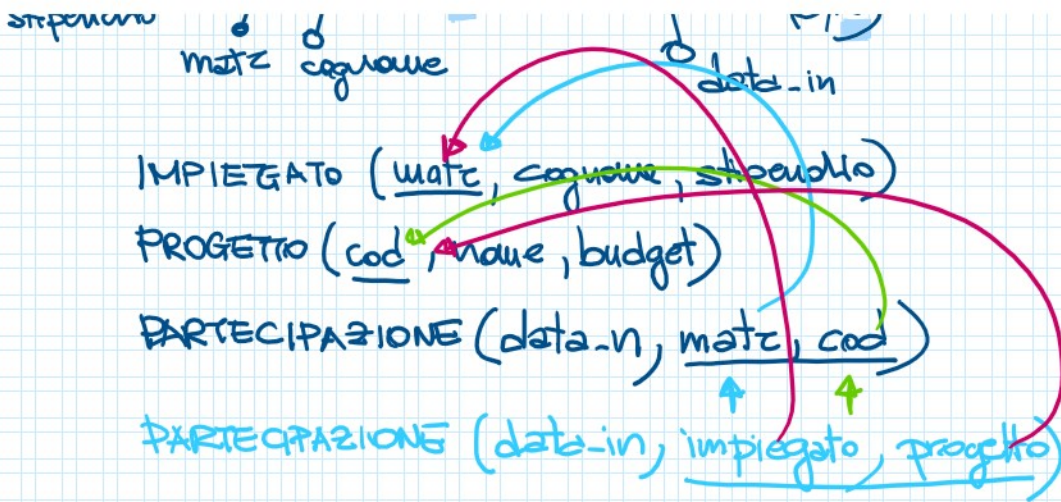 stipendio
matr cognome data_in
IMPIEGATO (matr, cognome, stipendio)
PROGETTO (cod, nome, budget)
PARTECIPAZIONE (data_n, matr, cod)
PARTECIPAZIONE (data_in, impiegato, progetto)